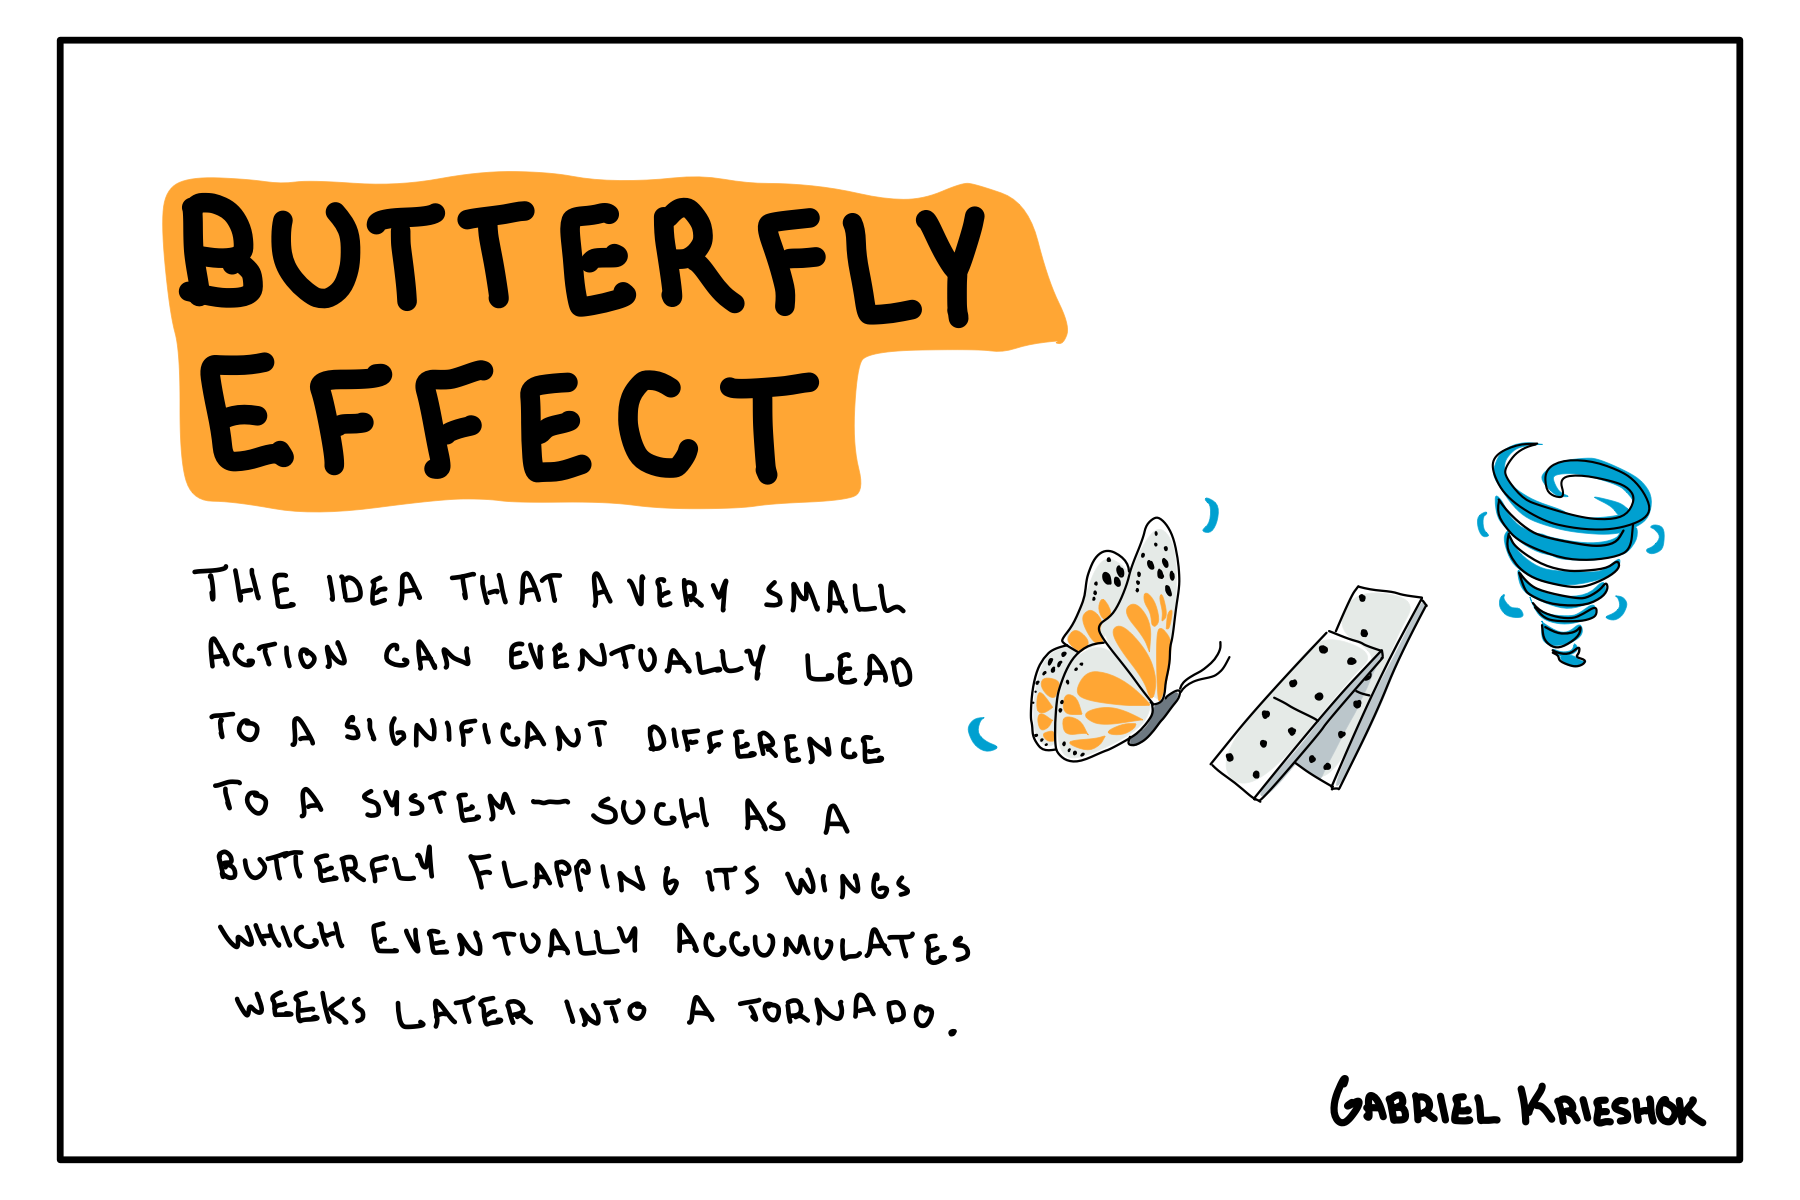 BUTTERFLY
EFFECT
THE IDEA THAT A VERY SMALL
ACTION CAN EVENTUALLY LEAD
TO A SIGNIFICANT DIFFERENCE
TO A SYSTEM — SUCH AS A
BUTTERFLY FLAPPING ITS WINGS
WHICH EVENTUALLY ACCUMULATES
WEEKS LATER INTO A TORNADO.
GABRIEL KRIESHOK